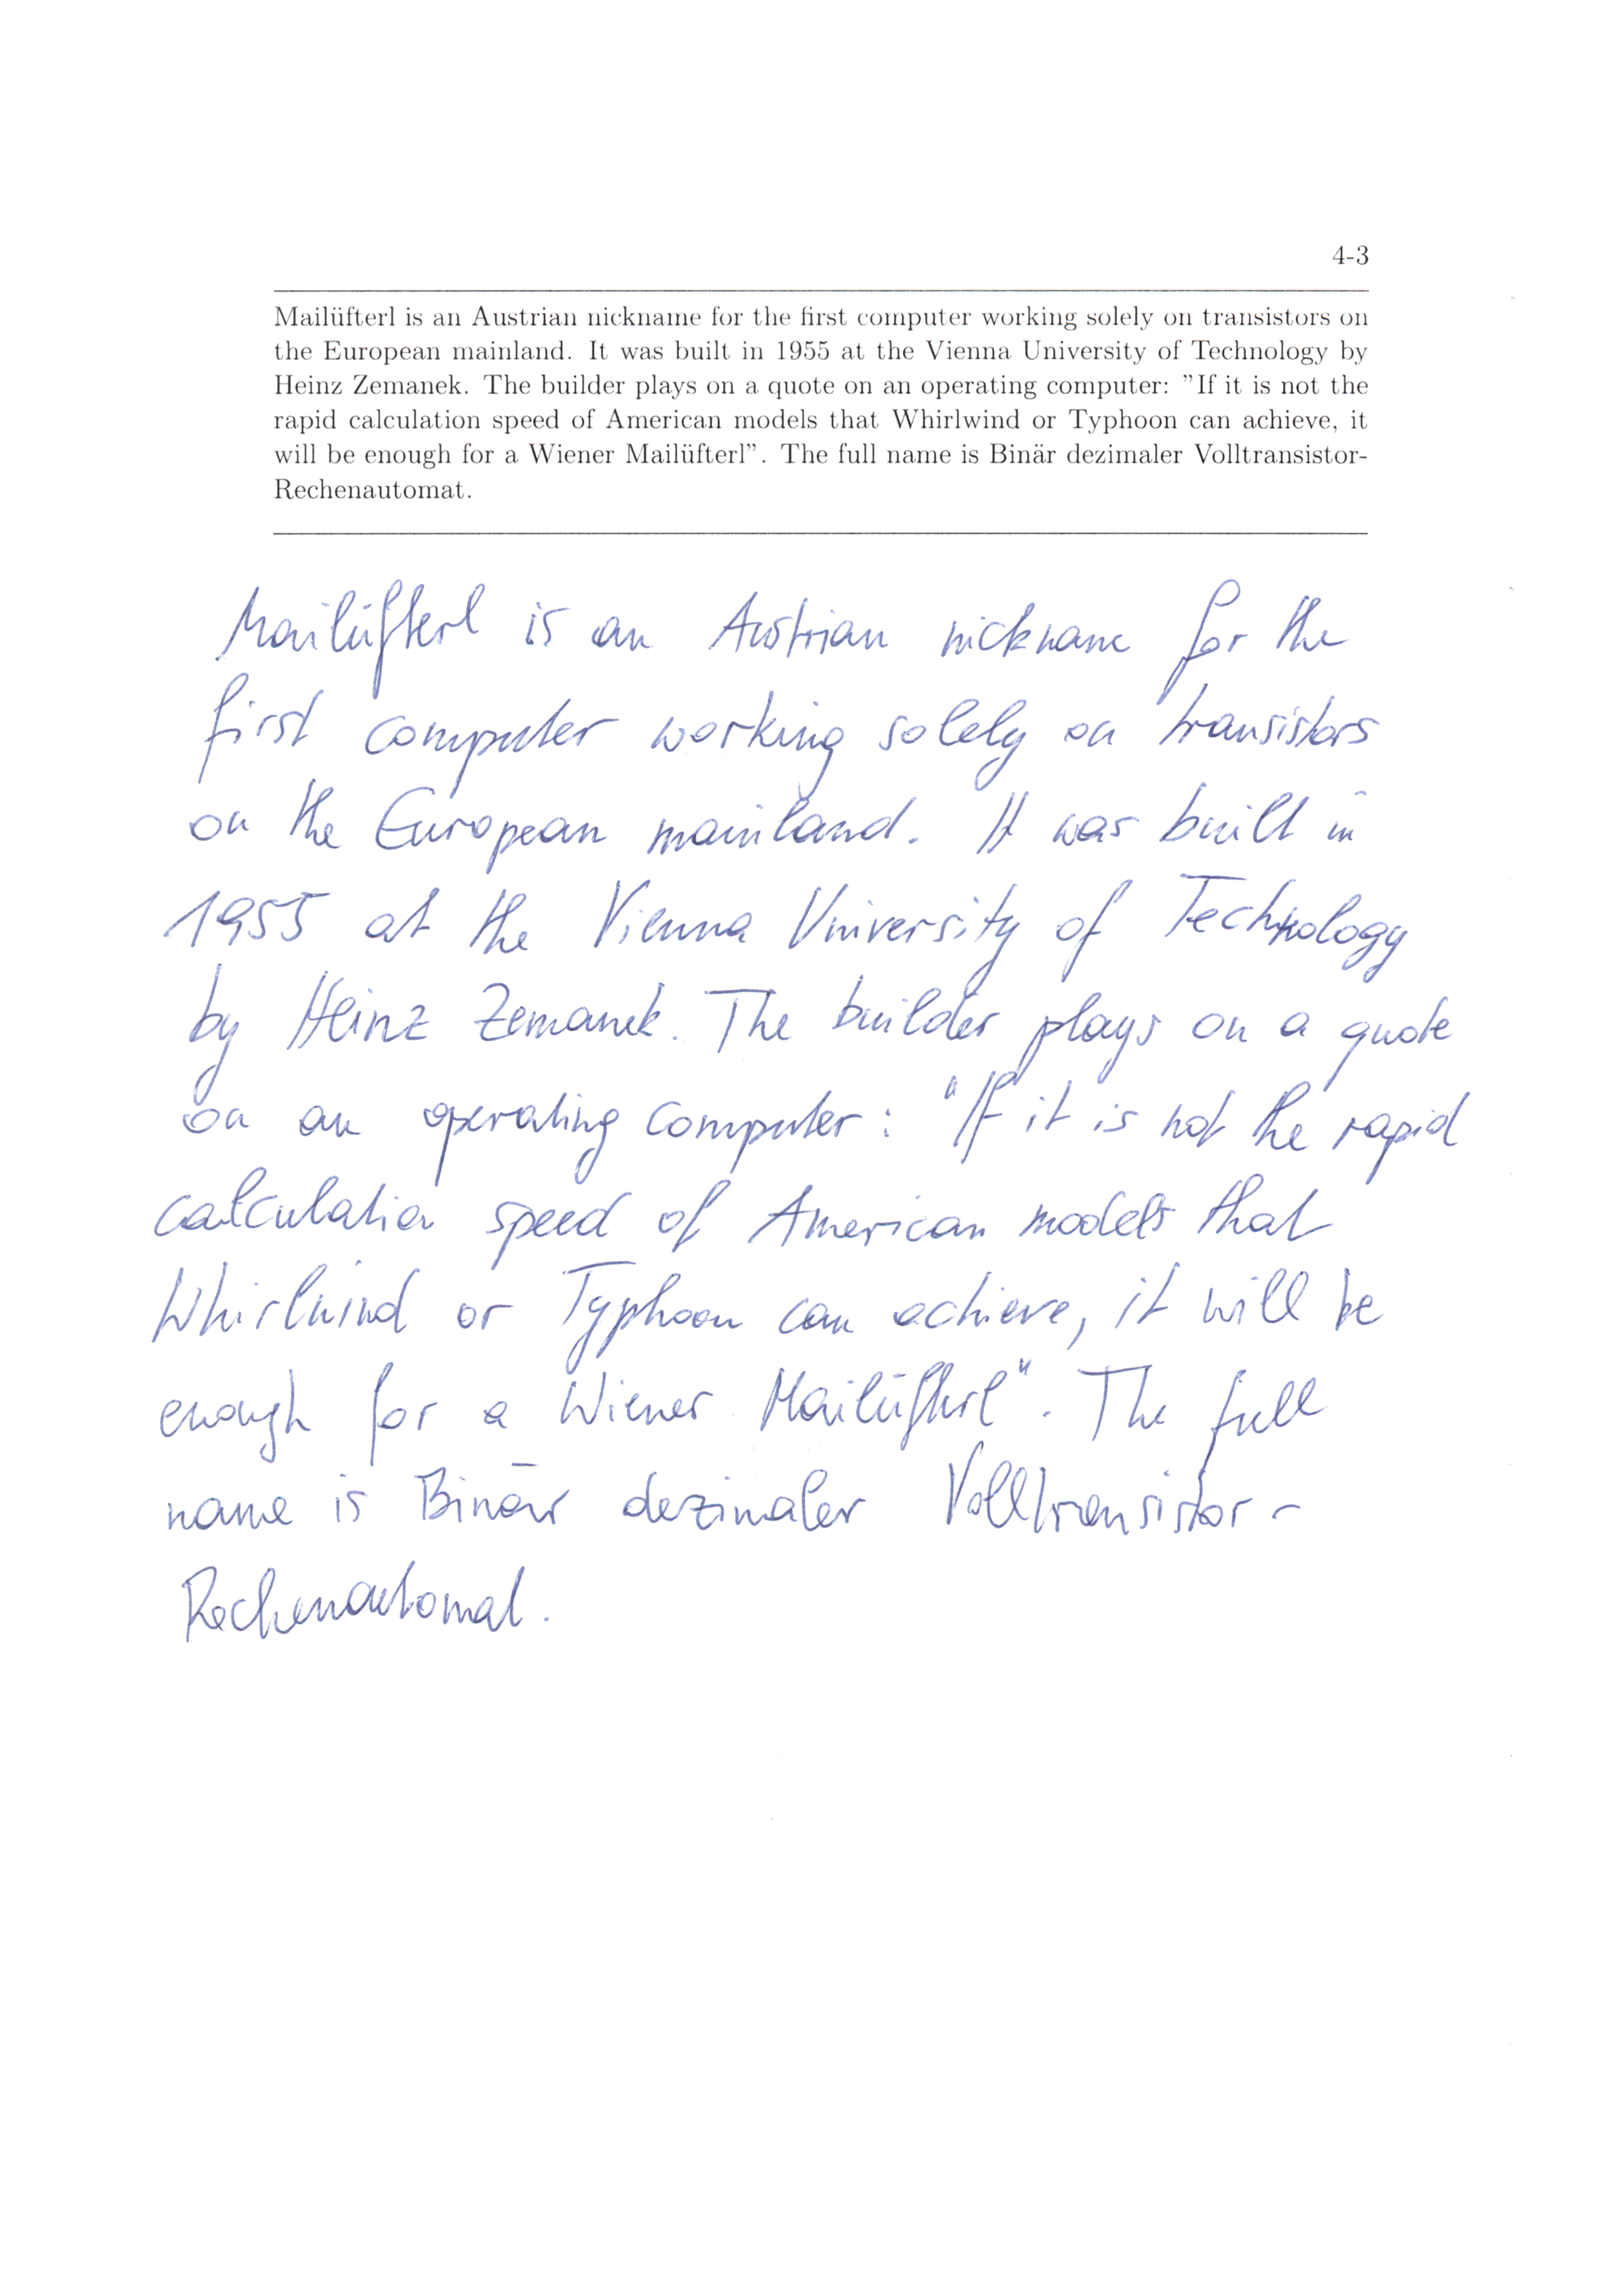 4-3
Mailüfterl is an Austrian nickname for the first computer working solely on transistors on
the European mainland. It was built in 1955 at the Vienna University of Technology by
Heinz Zemanek. The builder plays on a quote on an operating computer: "If it is not the
rapid calculation speed of American models that Whirlwind or Typhoon can achieve, it
will be enough for a Wiener Mailüfterl". The full name is Binär dezimaler Volltransistor-
Rechenautomat.
Mailüfterl is an Austrian nickname for the
first computer working solely on transistors
on the European mainland. It was built in
1955 at the Vienna University of Technology
by Heinz Zemanek. The builder plays on a quote
on an operating computer: "If it is not the rapid
calculation speed of American models that
Whirlwind or Typhoon can achieve, it will be
enough for a Wiener Mailüfterl". The full
name is Binär dezimaler Volltransistor-
Rechenautomat.